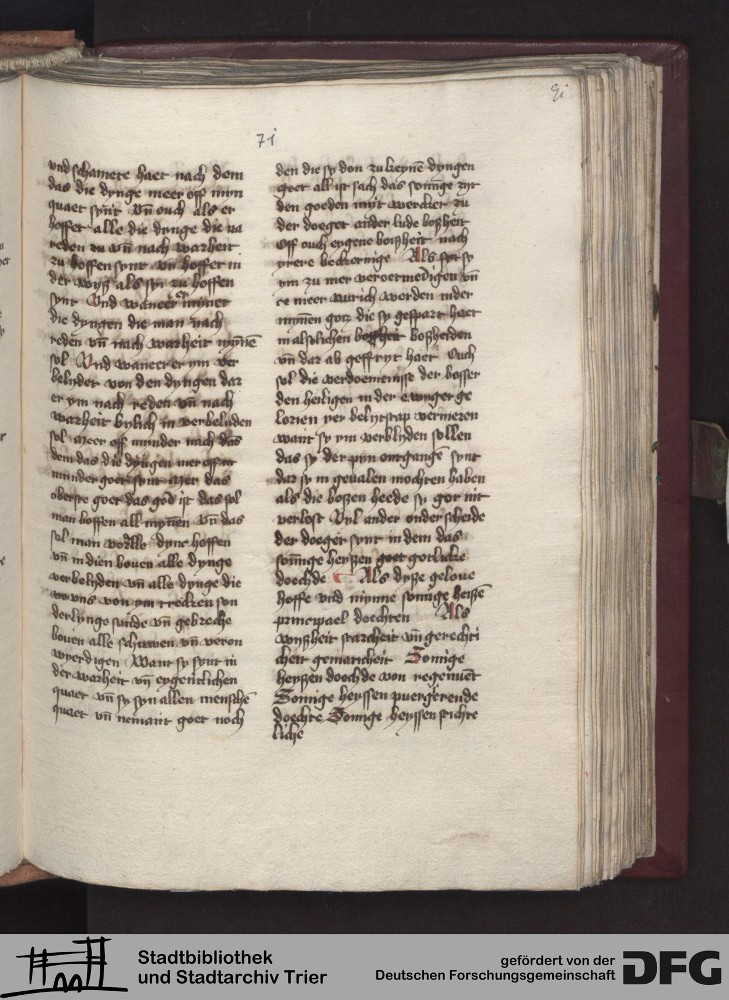 91
71
vnd schamete haet nach dem
das die dynge meer off myn
quaet synt vn̄ ouch als er
hoffet alle die dynge die na
reden zu vn̄ nach warheit
zu hoffen synt vn̄ hoffet in
der wyß als syn zu hoffen
synt Vnd waneer er mynet
die dyngen die man nach
reden vn̄ nach warheit mynnē
sol Vnd waneer er ym ver
belydet von den dyngen dar
er ym nach reden vn̄ nach
warheit bylich in verbelyden
sol meer off mynder nach das
dem das die dyngen mer off in
mynder goet synt mer das
oberste goet das got ist das sol
man hoffen all mynen vn̄ das
sol man wollē dync hoffen
vn̄ in dien bouen alle dynge
verbelyden vn̄ alle dynge die
wo vns von ym trecken son
derlynge sunde vn̄ gebreche
bouen alle schuwen vn̄ veron
wyerdigen Want sy synt in
der warheit vn̄ eygentlichen
quaet vn̄ sy syn allen menschē
quaet vn̄ nemant goet noch
den die sy don zu keynē dyngen
goet all ist sach das somige zyt
den goeden myt wercket zu
der doeget ander lude boßheit
Off ouch eygene boißheit nach
yrere beckernige Als syt sy
ym zu mer veroetmedigen vn̄
te meer vurich werden in der
mynen gotz die sy gespart haet
in alsolichen boßheiden
vn̄ dar ab geffryt haet Ouch
sol die verdoemenisse der bosser
den heiligen in der ewyger ge
lorien yer belytscap vermeren
want sy ym verblyden sollen
das sy der pyn ontgangē synt
dar sy in geualen mochten haben
als die boßen heede sy got nit
verlost Vyl ander onderscheide
der doeget synt in dem das
somige heyßen goet gotlicke
doechde Als dyße geloue
hoffe vnd mynne somige heißē
principael doechten Als
wyßheit starcheit vn̄ gerechti
cheit gematicheit Somige
heyßen doechde von regement
Somige heyssen puergerende
doechte Somige heyssen sichte
liche
Stadtbibliothek
und Stadtarchiv Trier
gefördert von der
Deutschen Forschungsgemeinschaft
DFG